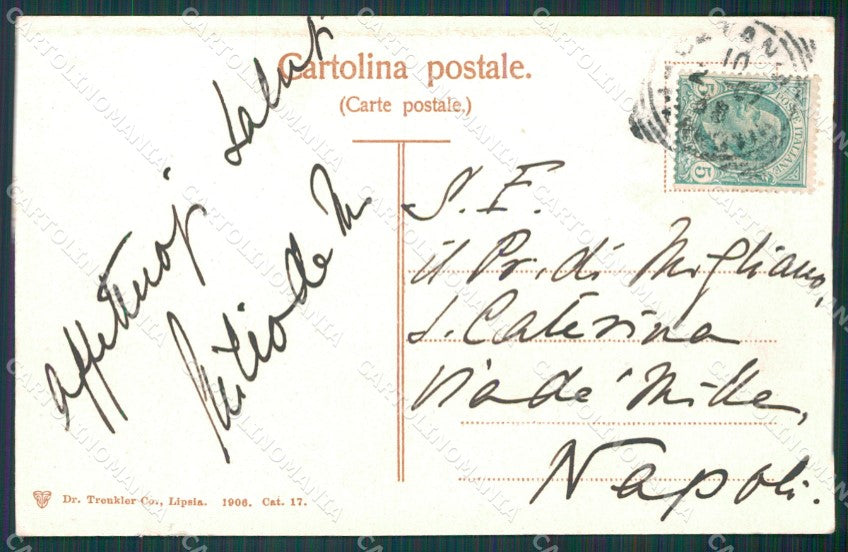 Cartolina postale.
(Carte postale.)
affettuosi saluti
de M
S. E.
il Pr. di Migliano,
S. Caterina
Via de' Mille,
Napoli.
Dr. Trenkler Co., Lipsia. 1906. Cat. 17.
POSTE ITALIANE
5 5
CARTOLINOMANIA